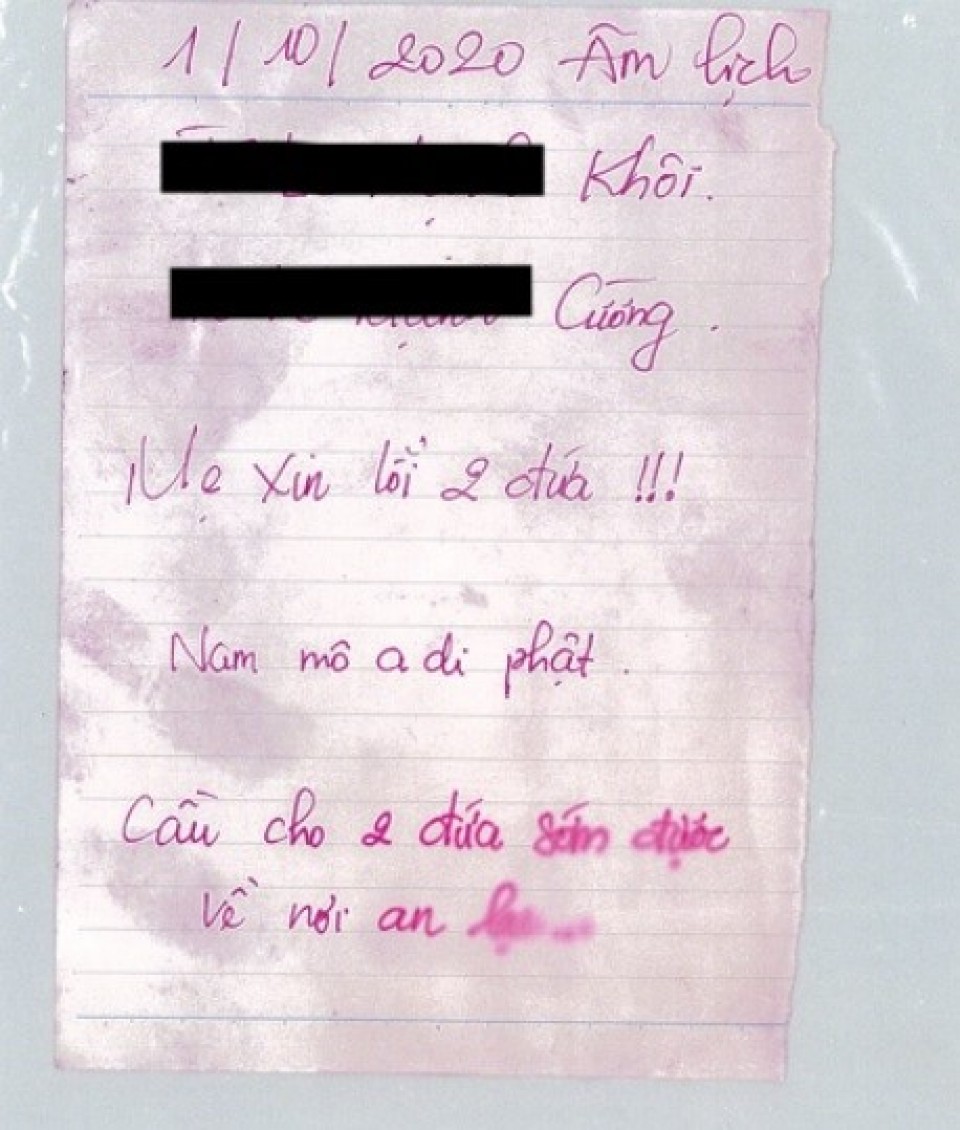 1/10/2020 Âm lịch
Khôi.
Cường.
Mẹ xin lỗi 2 đứa !!!
Nam mô a di phật.
Cầu cho 2 đứa sớm được
về nơi an